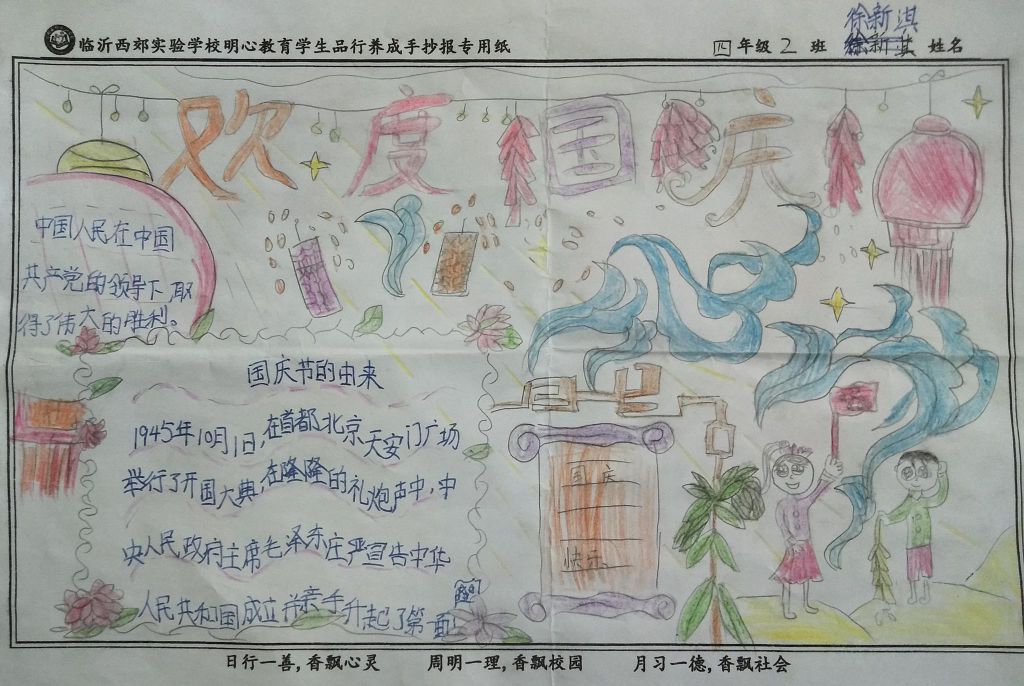 徐新淇
临沂西郊实验学校明心教育学生品行养成手抄报专用纸 四年级 2 班 徐新淇 姓名
欢度国庆
中国人民在中国
共产党的领导下,取
得了伟大的胜利。
国庆节的由来
1945年10月1日,在首都北京天安门广场
举行了开国大典,在隆隆的礼炮声中,中
央人民政府主席毛泽东庄严宣告中华
人民共和国成立并亲手升起了第一面
国庆
快乐
日行一善,香飘心灵 周明一理,香飘校园 月习一德,香飘社会